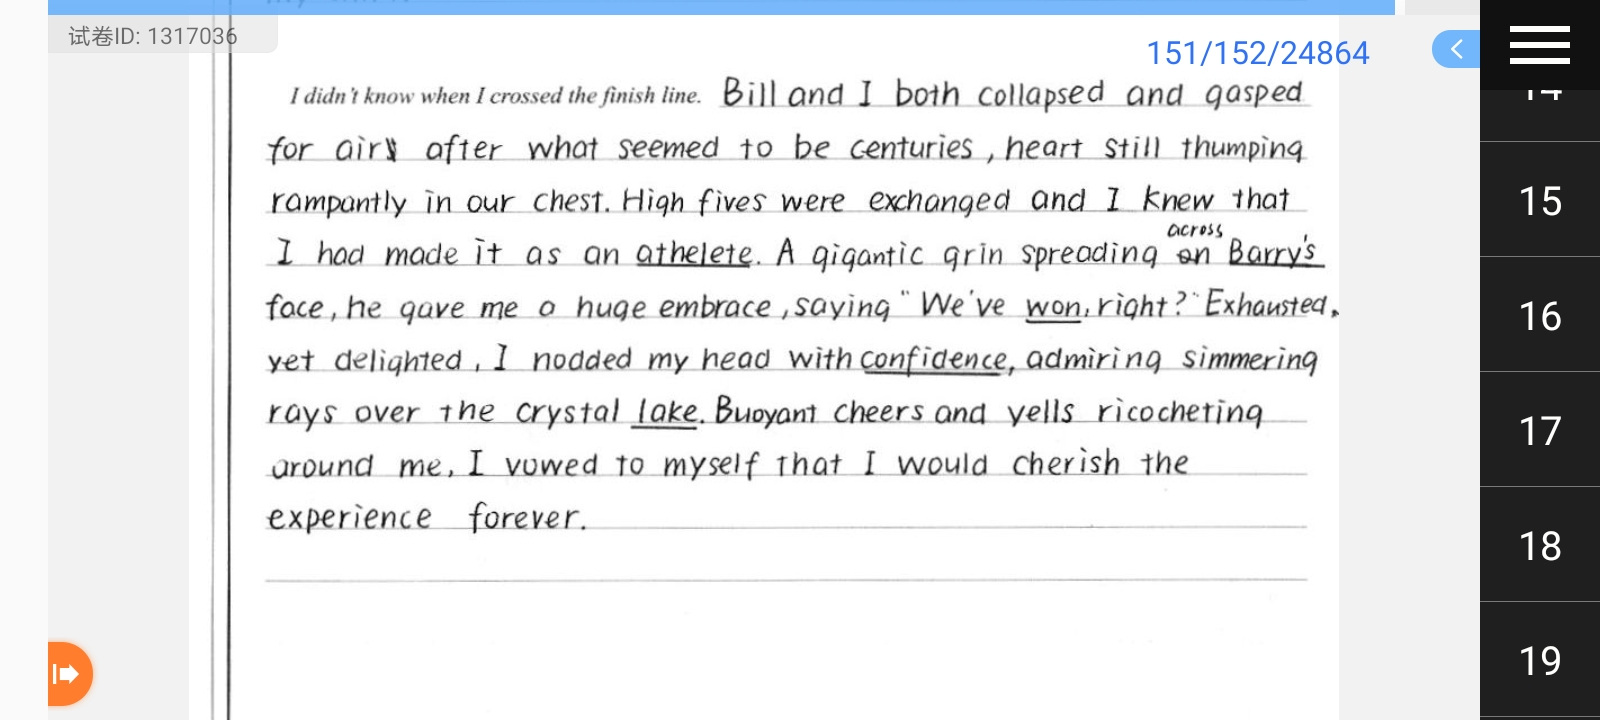 试卷ID: 1317036
151/152/24864
I didn't know when I crossed the finish line. Bill and I both collapsed and gasped
for air after what seemed to be centuries, heart still thumping
rampantly in our chest. High fives were exchanged and I knew that
across
I had made it as an athelete. A gigantic grin spreading on Barry's
face, he gave me a huge embrace, saying "We've won, right?" Exhausted,
yet delighted, I nodded my head with confidence, admiring simmering
rays over the crystal lake. Buoyant cheers and yells ricocheting
around me, I vowed to myself that I would cherish the
experience forever.
14
15
16
17
18
19